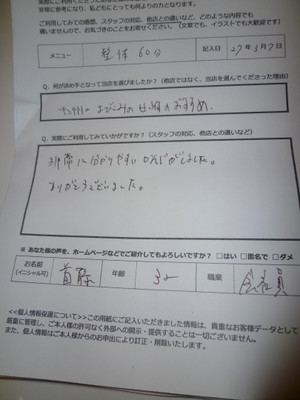 実際にご利用くださったあな
非常に参考になり、私どもにとっても何よりの力となります。
ご利用してみての感想、スタッフの対応、他店との違いなど、どのような内容でも
構いませんので、お気づきのことをお寄せください。(文章でも、イラストでも大歓迎です)
メニュー 整体 60分 記入日 27年3月7日
Q. 何が決め手となって当店を選びましたか?(他店ではなく、当店を選んでくださった理由)
の おすすめ.
Q. 実際にご利用してみていかがですか?(スタッフの対応、他店との違いなど)
非常に分かりやすい
ありがとうございました。
※ あなた様の声を、ホームページなどでご紹介してもよろしいですか? □はい □匿名で □ダメ
お名前
(イニシャル可) 首藤 年齢 32 職業 会社員
<<個人情報保護について>>この用紙にご記入いただきました情報は、貴重なお客様データとして
厳重に管理し、ご本人様の許可なく外部への開示・提供することは一切ございません。
また、個人情報はご本人様からのお申出により訂正・削除いたします。